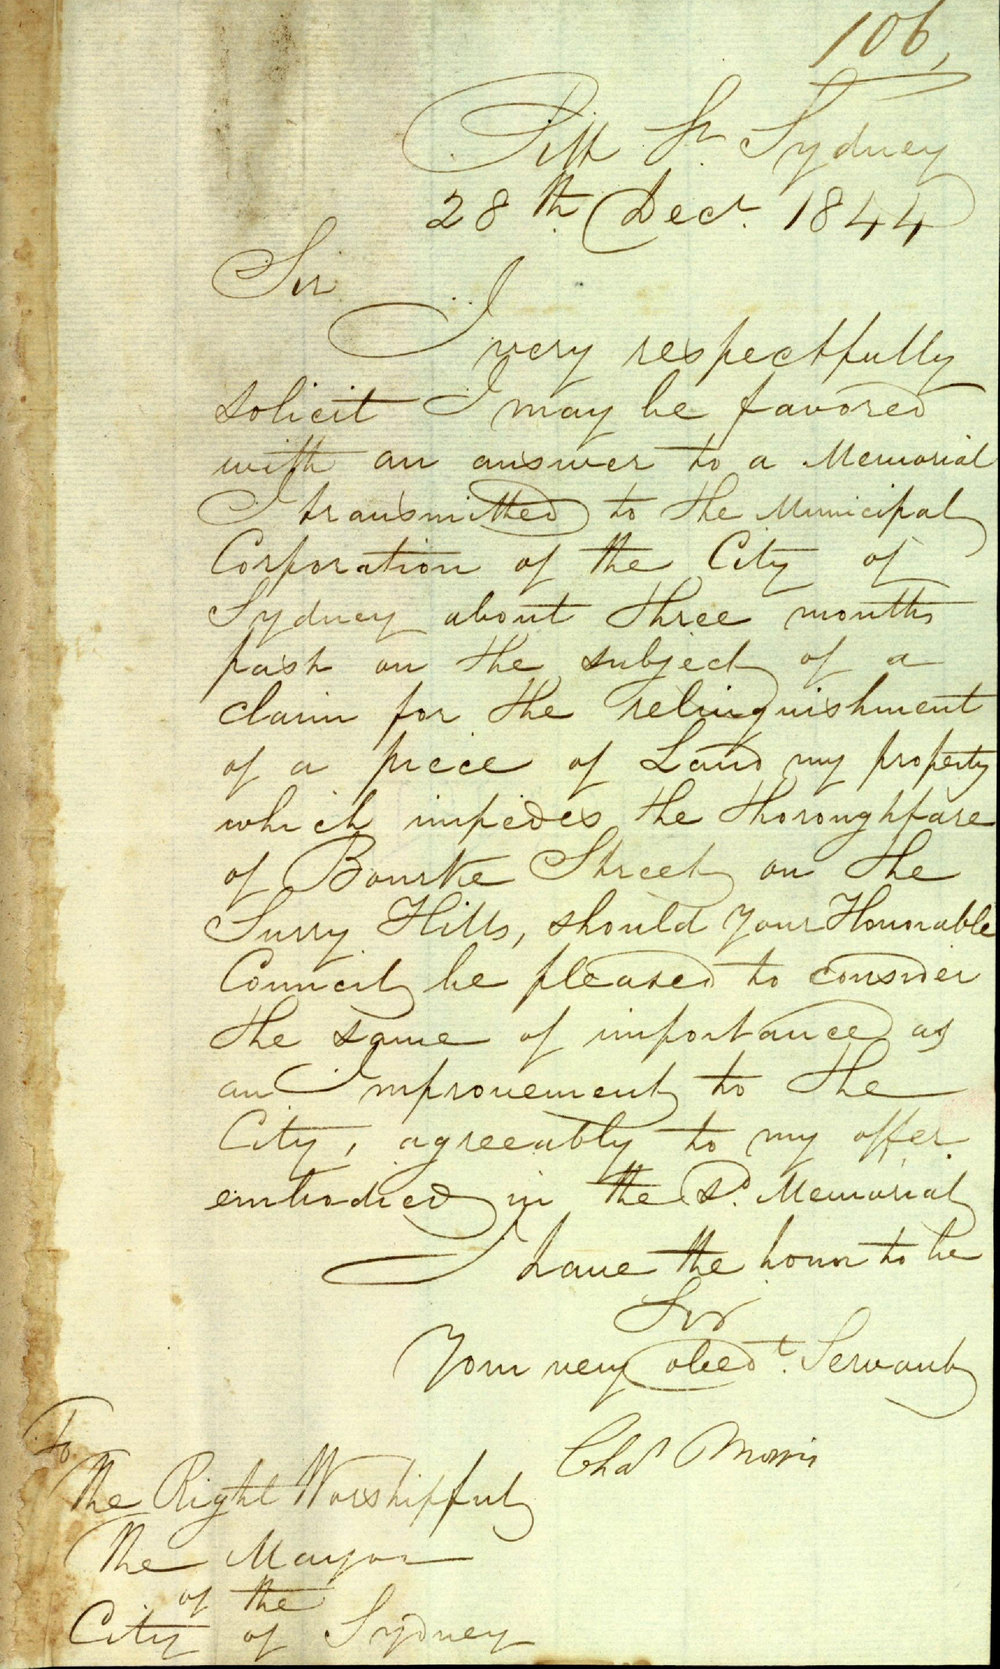 106,
Pitt St Sydney
28th Decr. 1844
Sir
I very respectfully
solicit I may be favored
with an answer to a Memorial
I transmitted to the Municipal
Corporation of the City of
Sydney about three months
past on the subject of a
claim for the relinquishment
of a piece of Land my property
which impedes the thoroughfare
of Bourke Street on the
Surry Hills, should your Honorable
Council be pleased to consider
the same of importance as
an Improvement to the
City, agreeably to my offer
embodied in the sd. Memorial
I have the honor to be
Sir
Your very obedt. Servant
Chas Morris
To
The Right Worshipful
The Mayor
of the
City of Sydney